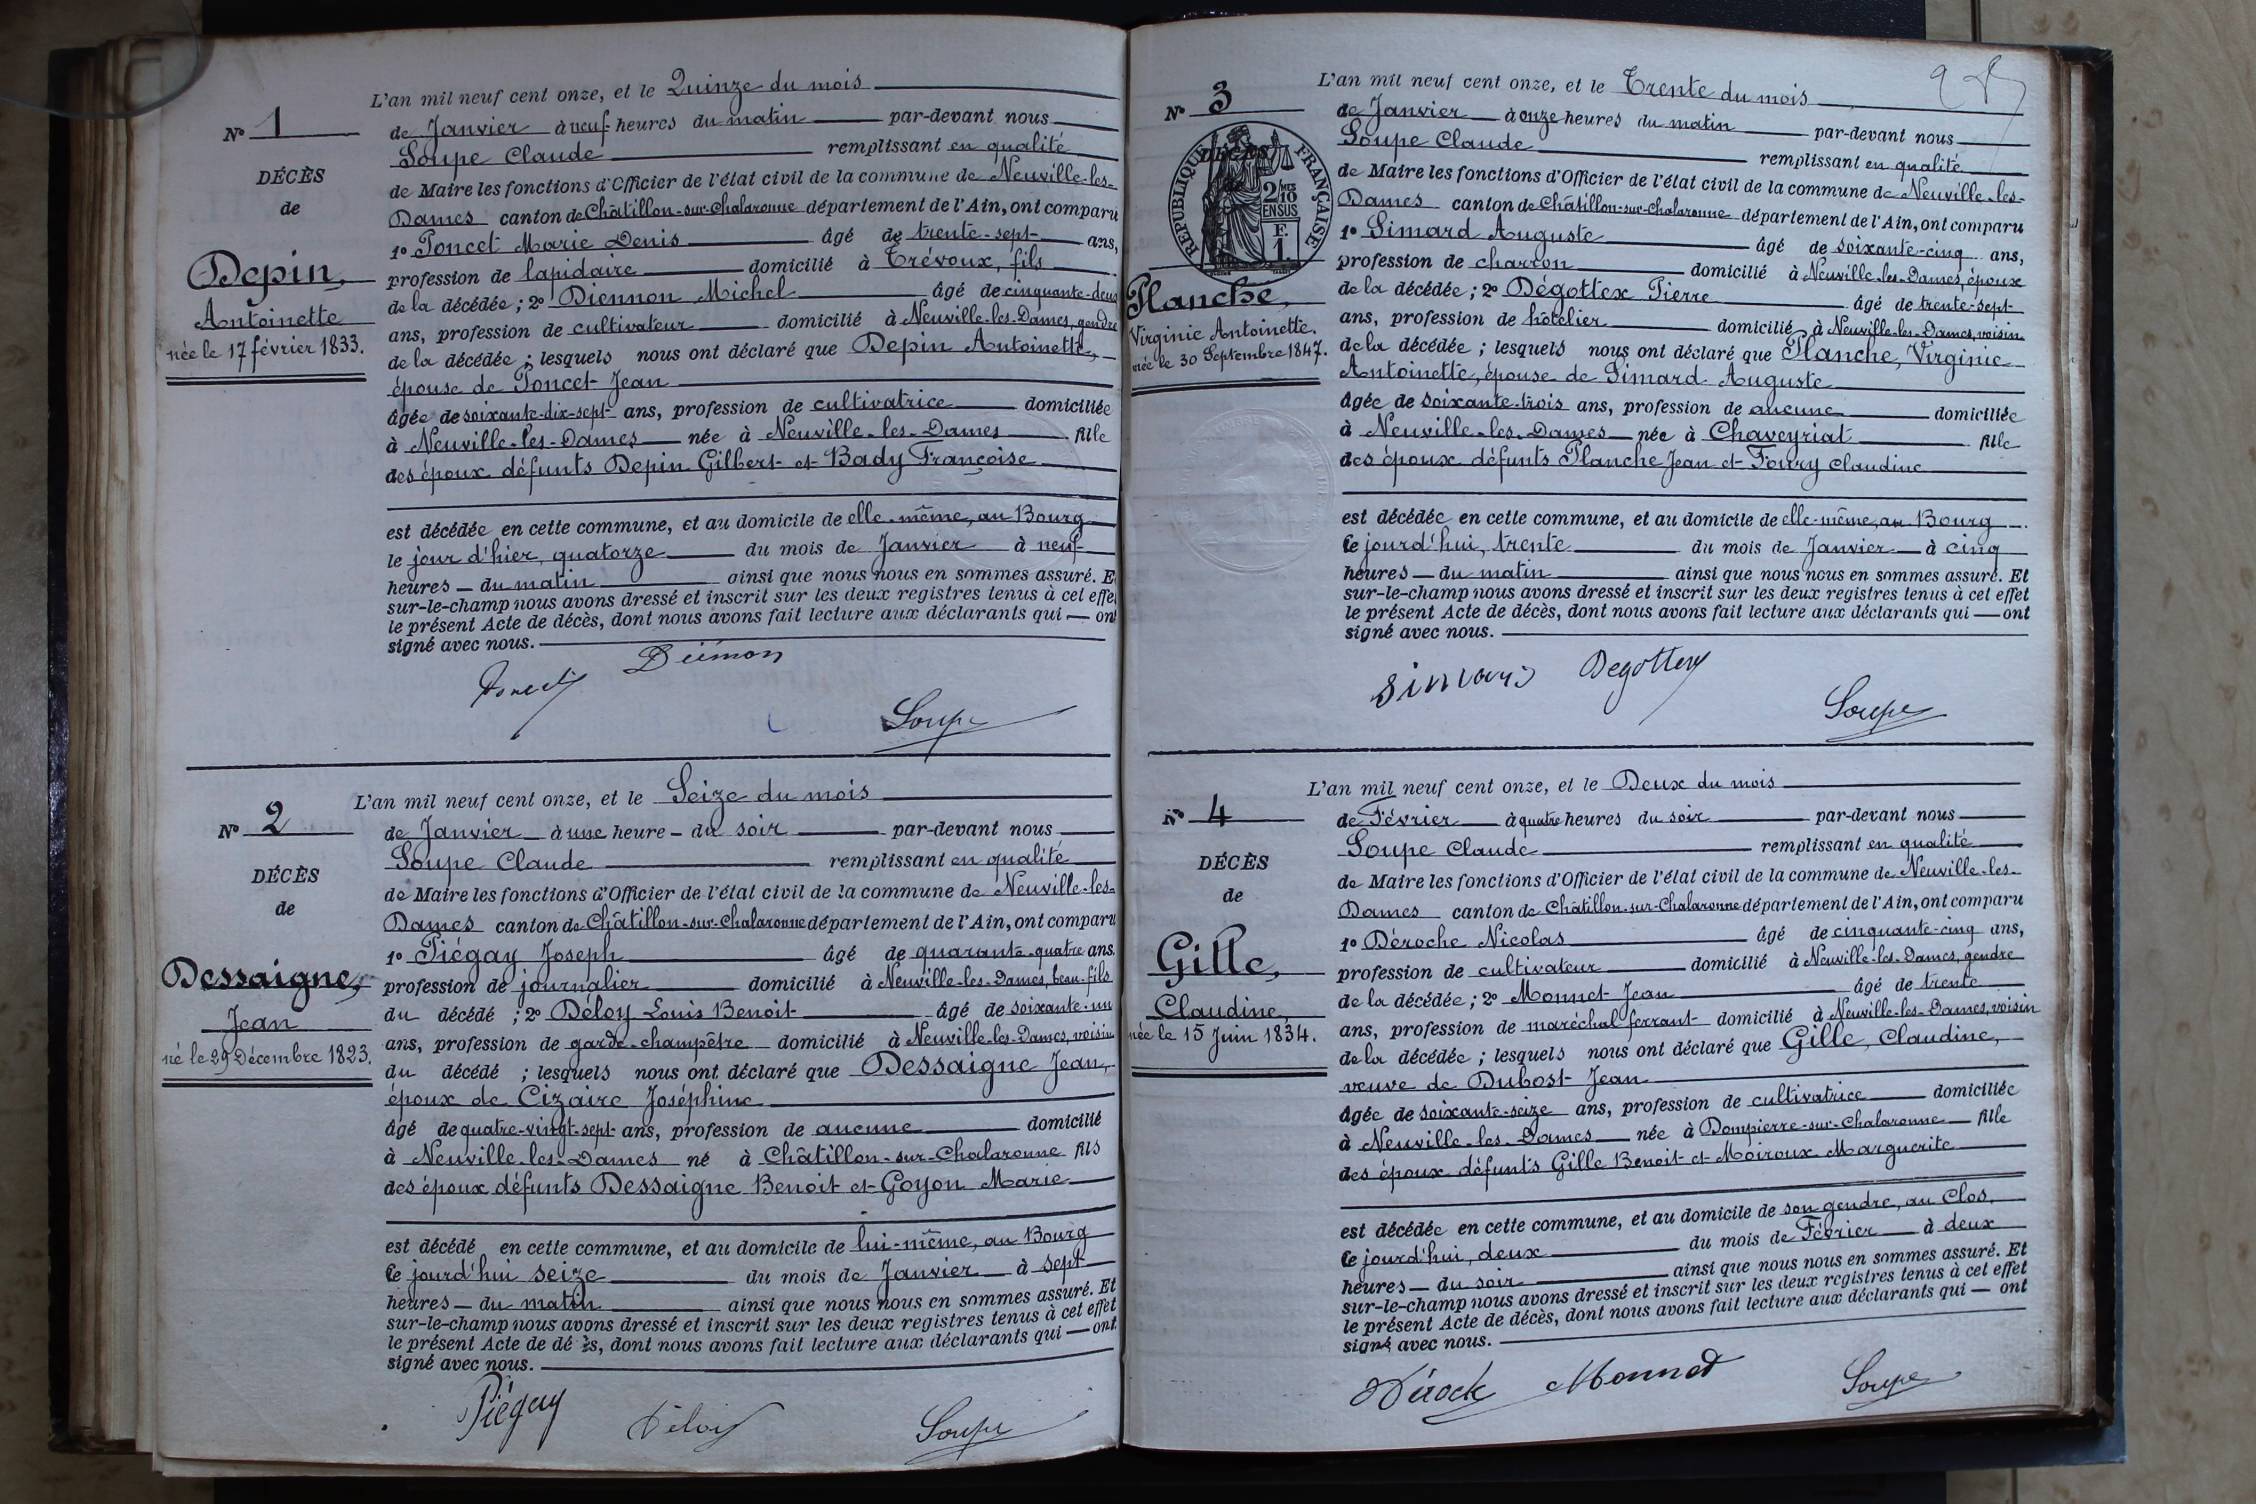 L'an mil neuf cent onze, et le Quinze du mois
N° 1
de Janvier à neuf heures du matin par-devant nous
Soupe Claude remplissant en qualité
DÉCÈS
de Maire les fonctions d'Officier de l'état civil de la commune de Neuville-les-
de
Dames canton de Châtillon-sur-Chalaronne département de l'Ain, ont comparu
1° Poncet Marie Denis âgé de trente-sept ans,
Depin,
profession de lapidaire domicilié à Trévoux, fils
de la décédée ; 2° Diennon Michel âgé de cinquante-deux
Antoinette
ans, profession de cultivateur domicilié à Neuville-les-Dames, gendre
née le 17 février 1833.
de la décédée ; lesquels nous ont déclaré que Depin Antoinette,
épouse de Poncet Jean
âgée de soixante-dix-sept ans, profession de cultivatrice domiciliée
à Neuville-les-Dames née à Neuville-les-Dames fille
des époux défunts Depin Gilbert et Bady Françoise
est décédée en cette commune, et au domicile de elle-même, au Bourg
le jour d'hier, quatorze du mois de Janvier à neuf
heures du matin ainsi que nous nous en sommes assuré. E
sur-le-champ nous avons dressé et inscrit sur les deux registres tenus à cet effe
le présent Acte de décès, dont nous avons fait lecture aux déclarants qui ont
signé avec nous.
Soupe
L'an mil neuf cent onze, et le Seize du mois
N° 2
de Janvier à une heure du soir par-devant nous
Soupe Claude remplissant en qualité
DÉCÈS
de Maire les fonctions d'Officier de l'état civil de la commune de Neuville-les-
de
Dames canton de Châtillon-sur-Chalaronne département de l'Ain, ont comparu
1° Piégay Joseph âgé de quarante-quatre ans,
Dessaigne,
profession de journalier domicilié à Neuville-les-Dames, beau-fils
du décédé ; 2° Déloy Louis Benoit âgé de soixante-un
Jean
ans, profession de garde-champêtre domicilié à Neuville-les-Dames, voisin
né le 29 Décembre 1823.
du décédé ; lesquels nous ont déclaré que Dessaigne Jean,
époux de Cizaire Joséphine
âgé de quatre-vingt-sept ans, profession de aucune domicilié
à Neuville-les-Dames né à Châtillon-sur-Chalaronne fils
des époux défunts Dessaigne Benoit et Goyon Marie
est décédé en cette commune, et au domicile de lui-même, au Bourg
Ce jourd'hui seize du mois de Janvier à sept
heures du matin ainsi que nous nous en sommes assuré. Et
sur-le-champ nous avons dressé et inscrit sur les deux registres tenus à cet effet
le présent Acte de dé ès, dont nous avons fait lecture aux déclarants qui ont
signé avec nous.
Piégay
Déloy
Soupe
L'an mil neuf cent onze, et le Trente du mois
N° 3
de Janvier à onze heures du matin par-devant nous
Soupe Claude remplissant en qualité
RÉPUBLIQUE FRANÇAISE
DÉCÈS
2/10 MES
EN SUS
F.
1
de Maire les fonctions d'Officier de l'état civil de la commune de Neuville-les-
Dames canton de Châtillon-sur-Chalaronne département de l'Ain, ont comparu
1° Simard Auguste âgé de soixante-cinq ans,
profession de charron domicilié à Neuville-les-Dames, époux
Planche,
de la décédée ; 2° Dégottex Pierre âgé de trente-sept
Virginie Antoinette.
ans, profession de hôtelier domicilié à Neuville-les-Dames, voisin
née le 30 Septembre 1847.
de la décédée ; lesquels nous ont déclaré que Planche, Virginie
Antoinette, épouse de Simard Auguste
âgée de soixante-trois ans, profession de aucune domiciliée
à Neuville-les-Dames née à Chaveyriat fille
des époux défunts Planche Jean et Foury Claudine
est décédée en cette commune, et au domicile de elle-même, au Bourg
Ce jourd'hui, trente du mois de Janvier à cinq
heures du matin ainsi que nous nous en sommes assuré. Et
sur-le-champ nous avons dressé et inscrit sur les deux registres tenus à cet effet
le présent Acte de décès, dont nous avons fait lecture aux déclarants qui ont
signé avec nous.
Simard
Degottex
Soupe
L'an mil neuf cent onze, et le Deux du mois
N° 4
de Février à quatre heures du soir par-devant nous
Soupe Claude remplissant en qualité
DÉCÈS
de Maire les fonctions d'Officier de l'état civil de la commune de Neuville-les-
de
Dames canton de Châtillon-sur-Chalaronne département de l'Ain, ont comparu
1° Déroche Nicolas âgé de cinquante-cinq ans,
Gille,
profession de cultivateur domicilié à Neuville-les-Dames, gendre
de la décédée ; 2° Monnet Jean âgé de trente
Claudine,
ans, profession de maréchal ferrant domicilié à Neuville-les-Dames, voisin
née le 15 Juin 1834.
de la décédée ; lesquels nous ont déclaré que Gille, Claudine,
veuve de Dubost Jean
âgée de soixante-seize ans, profession de cultivatrice domiciliée
à Neuville-les-Dames née à Dompierre-sur-Chalaronne fille
des époux défunts Gille Benoit et Moiroux Marguerite
est décédée en cette commune, et au domicile de son gendre, au Clos,
Ce jourd'hui, deux du mois de Février à deux
heures du soir ainsi que nous nous en sommes assuré. Et
sur-le-champ nous avons dressé et inscrit sur les deux registres tenus à cet effet
le présent Acte de décès, dont nous avons fait lecture aux déclarants qui ont
signé avec nous.
Monnet
Soupe